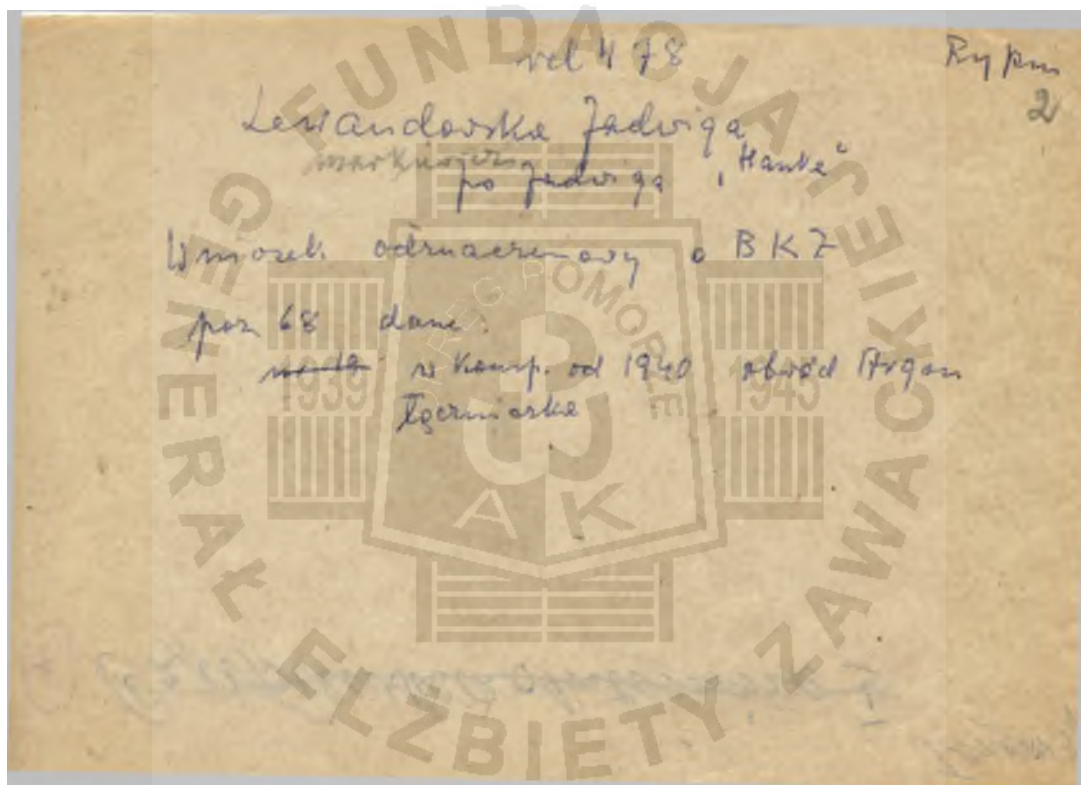 478
Rypin
2
Lewandowska Jadwiga
po Jadwiga „Hanka"
Wniosek odznaczeniowy o BKZ
poz 68 dane:
w konsp. od 1940 obwód
Łączniarka
FUNDACJA
GENERAŁ ELŻBIETY ZAWACKIEJ
OKRĘG POMORZE
1939 1945
AK